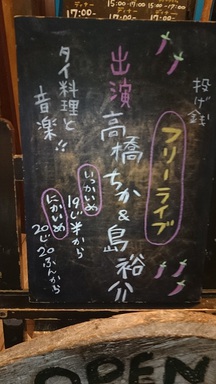 ディナー
17:00-
15:00-17:00
ディナー
17:00-
投げ銭
フリーライブ
出演 高橋ちか&島裕介
タイ料理と
音楽!!
いっかいめ
19じ半から
にかいめ
20じ20ふんから
OPEN